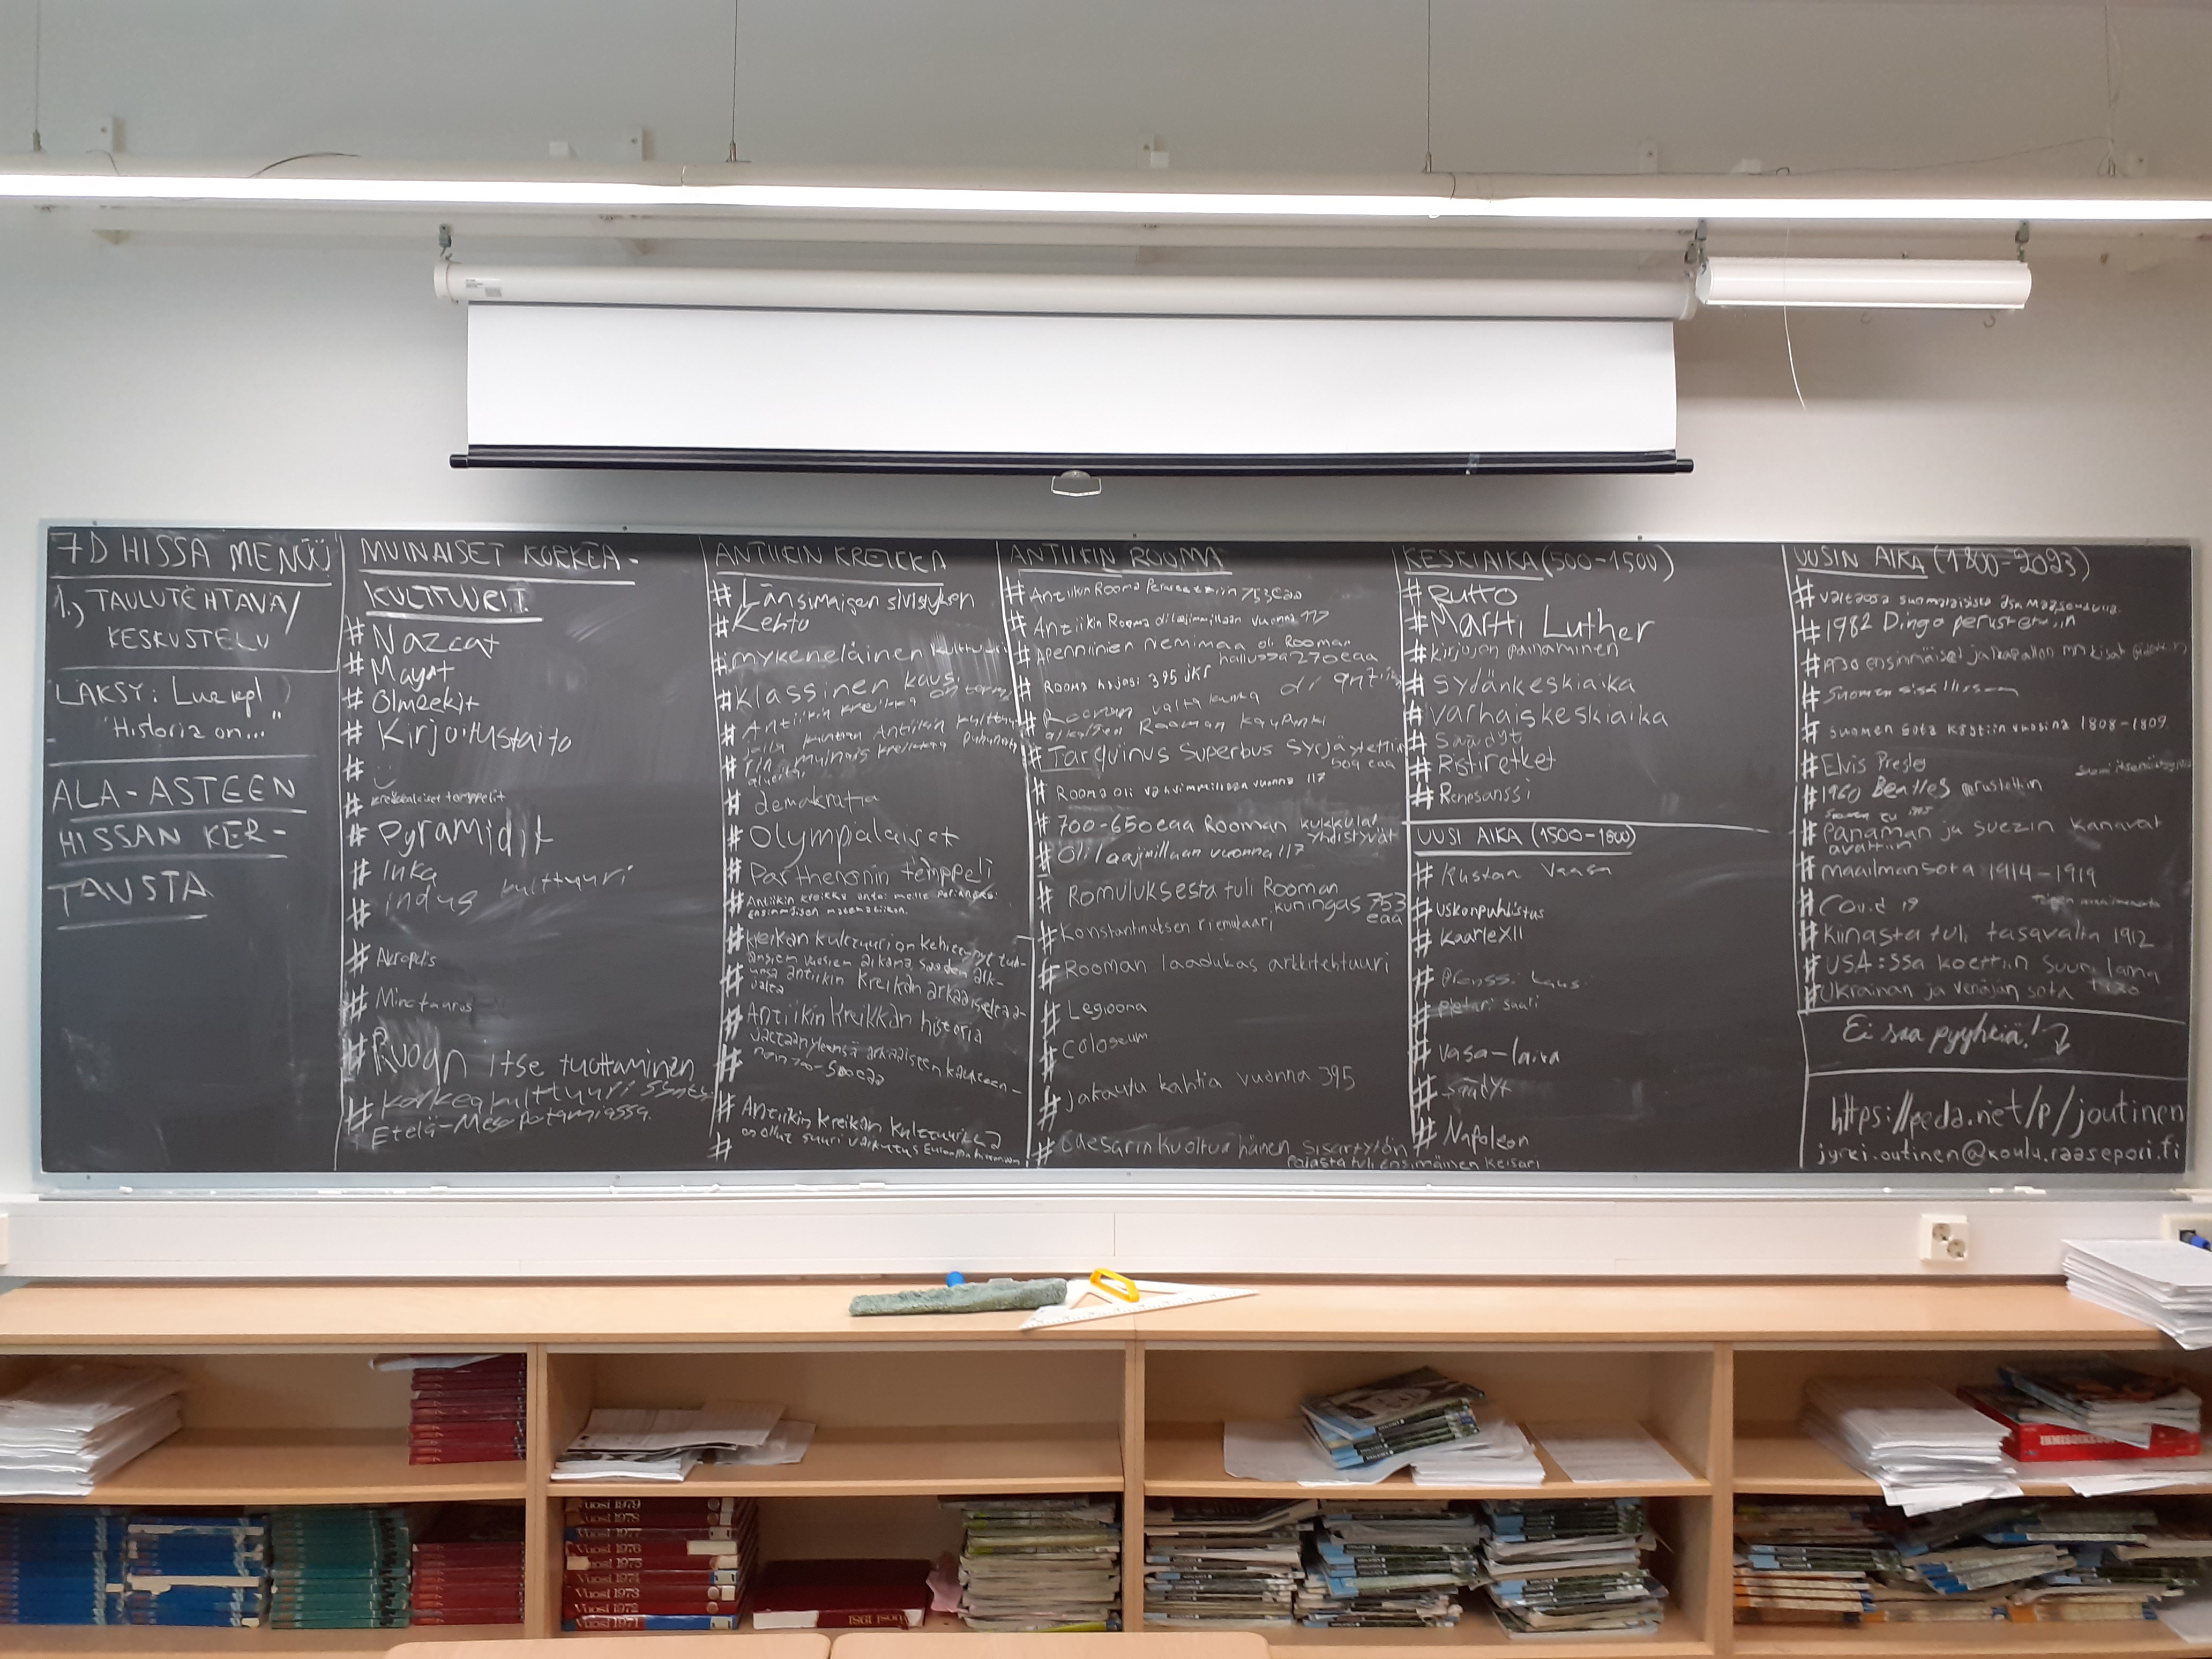 7D HISSA MENÜÜ
1.) TAULUTEHTÄVÄ/
KESKUSTELU
LÄKSY: Lue kpl
"Historia on..."
ALA-ASTEEN
HISSAN KER-
TAUSTA
MUINAISET KORKEA-
KULTTUURIT
# Nazcat
# Mayat
# Olmeekit
# Kirjoitustaito
#
# kreikkalaiset temppelit
# Pyramidit
# Inka
# indus kulttuuri
# Akropolis
# Minotaurus
# Ruoan itse tuottaminen
# korkeakulttuuri syntyi
Etelä-Mesopotamiassa.
ANTIIKIN KREIKKA
# Länsimaisen sivistyksen
# Kehto
# mykeneläinen kulttuuri
# Klassinen kausi
# Antiikin kreikka
# demokratia
# Olympialaiset
# Parthenonin temppeli
# Antiikin kreikka antoi meille
ensimmäisen
# kreikan kulttuuri on kehittynyt tuh-
ansien vuosien aikana, saaden alk-
unsa antiikin kreikan arkaaiselta a-
jalta
# Antiikin kreikkan historia
# arkaaiseen kauteen
noin 700-500eaa
# Antiikin kreikan kulttuurilla
# on ollut suuri vaikutus
ANTIIKIN ROOMA
# Antiikin Rooma Perustettiin 753eaa
# Antiikin Rooma oli laajimmillaan vuonna 117
# Apenniinien niemimaa oli Rooman
hallussa 270eaa
# Rooma hajosi 395 jkr
# Rooman valtakunta oli
Rooman kaupunki
# Tarquinus Superbus syrjäytettiin
509 eaa
# Rooma oli vahvimmillaan vuonna 117
# 700-650eaa Rooman kukkulat
yhdistyvät
# Oli laajimillaan vuonna 117
# Romuluksesta tuli Rooman
kuningas 753
eaa
# Konstantinuksen riemukaari
# Rooman laadukas arkkitehtuuri
# Legioona
# Coloseum
# Jakautu kahtia vuonna 395
# Caesarin kuoltua hänen sisartytön
pojasta tuli ensimäinen keisari
KESKIAIKA (500-1500)
# Rutto
# Martti Luther
# kirjojen painaminen
# Sydänkeskiaika
# Varhaiskeskiaika
# Säädyt
# Ristiretket
# Renesanssi
UUSI AIKA (1500-1800)
# Kustaa Vaasa
# uskonpuhdistus
# Kaarle XII
#
# pietari suuri
# Vasa-laiva
# säädyt
# Napoleon
UUSIN AIKA (1800-2023)
# valtaosa suomalaisista asui maaseudulla.
# 1982 Dingo perustettiin
# 1930 ensimmäiset jalkapallon mm kisat pidettiin
# Suomen sisällissota
# suomen sota käytiin vuosina 1808-1809.
# Elvis Presley
# 1960 Beatles perustettiin
# Panaman ja suezin kanavat
avattiin
# maailmansota 1914-1919
# Covid 19
# Kiinasta tuli tasavalta 1912
# USA:ssa koettiin suuri lama
# Ukrainan ja venäjän sota
Ei saa pyyhkiä!
https://peda.net/p/joutinen
jyrki.outinen@koulu.raasepori.fi
Vuosi 1979
Vuosi 1978
Vuosi 1977
Vuosi 1976
Vuosi 1975
Vuosi 1974
Vuosi 1973
Vuosi 1972
Vuosi 1971
Vuosi 1981